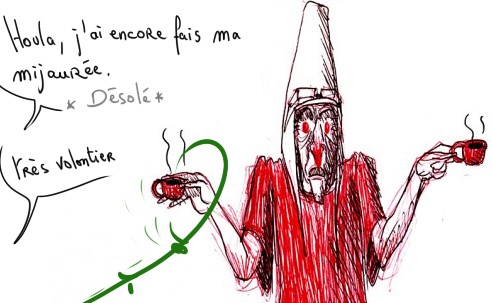 Houla, j'ai encore fais ma
mijaurée.
* Désolé *
très volontier